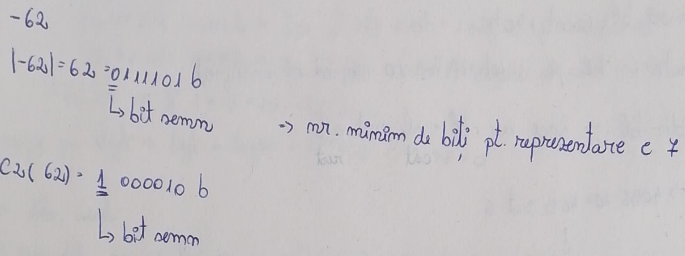 -62
|-62| = 62 = 0111101 b
↳ bit semn
-> nr. minim de biți pt. reprezentare e 7
C2(62) = 1 000010 b
↳ bit semn